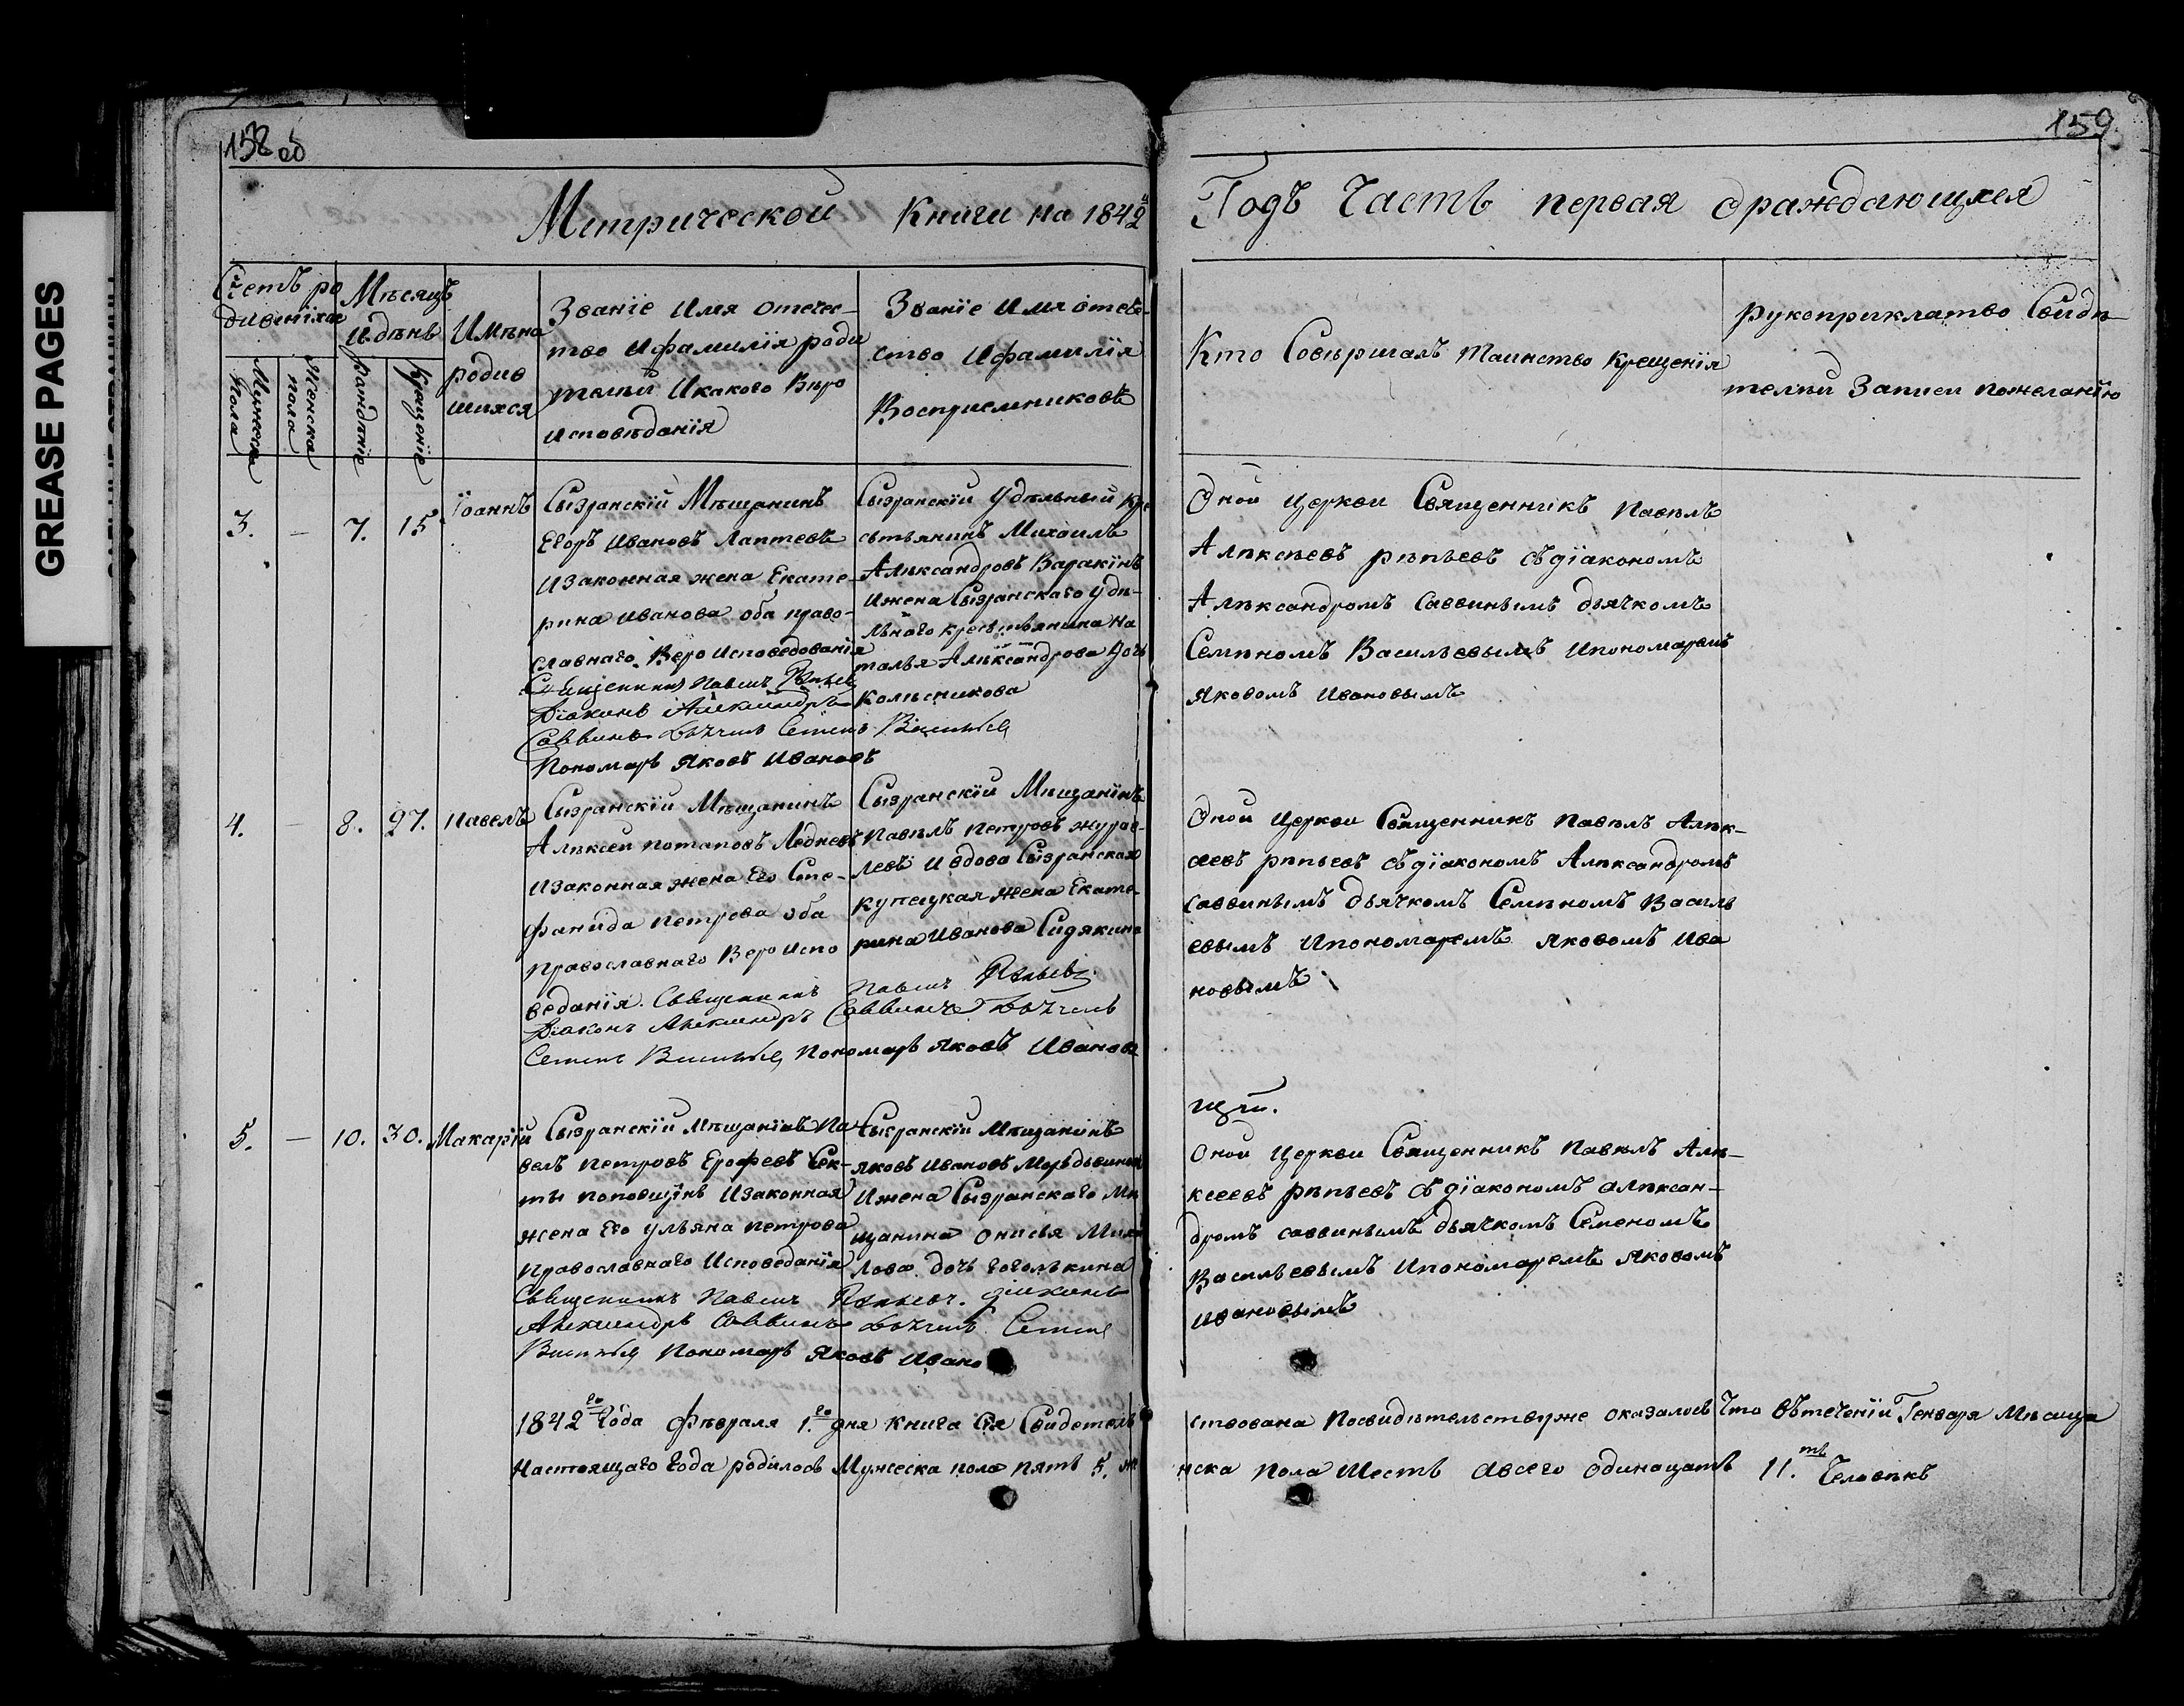 GREASE PAGES
158 об
159
Метрической Книги на 1842й
Годъ Часть первая ораждающихся
Счетъ ро
дивепіхся
Мужеска
пола
Женска
пола
Мѣсяцъ
и дѣнь
ражденіе
Крещеніе
Имѣна
родив
шихся
Званіе Имя отечес-
тво Ифамилія роди
тельй Икакого Вѣро
исповѣданія
Званіе Имя отече-
ство Ифамилія
Восприемниковъ
Кто Совѣршалъ таинство крещенія
рукоприклатво Свидѣ
телѣй Записи пожеланію
3. — 7. 15. Іоаннъ
Сызранскій Мѣщанинъ
Егоръ Ивановъ Лаптевъ
Изаконная жена Екате-
рина Иванова оба право-
славнаго Вѣро Исповедованія
Священникъ Павелъ Рѣпьев
Діаконъ Александръ
Саввинъ Дьячекъ Семенъ Васильев
Пономарь Яковъ Ивановъ
Сызранскій Удѣльный кре
стьянинъ Михаилъ
Алѣксандровъ Варакінъ
Ижена Сызранскаго удѣ-
льнаго крестьянина На
талья Алѣксандрова дочь
Колѣсникова
Оной церкви Священникъ Павѣлъ
Алѣксѣевъ рѣпьевъ съдіакономъ
Алѣксандромъ Саввинымъ дьячкомъ
Семѣномъ Васильевымъ Ипономаремъ
Яковомъ Ивановымъ
4. — 8. 27. Павелъ
Сызранскій Мѣщанинъ
Алѣксѣй Потаповъ Ледневъ
Изаконная жена Его Сте-
фанида Петрова оба
Православнаго Веро Испо
веданія. Священникъ Павелъ Рѣпьевъ
Діаконъ Александръ Саввинъ Дьячекъ
Семенъ Васильев Пономарь Яковъ Ивановъ
Сызранскій Мѣщанінъ
Павѣлъ Петровъ журав-
левъ И вдова Сызранская
купецкая жена Екате-
рина Иванова Сидякина
Оной Церкви Священникъ Павѣлъ Алѣк-
сѣевъ рѣпьевъ съдіакономъ Алѣксандромъ
саввинымъ дьячкомъ Семѣномъ Василь
евымъ Ипономаремъ Яковомъ Ива
новымъ
5. — 10. 30. Макарій
Сызранскій Мѣщанінъ Па
велъ Петровъ Ерофеевъ Сек-
ты поповщінъ Изаконная
жена Его ульяна петрова
Православнаго Исповеданія
Священникъ Павелъ Рѣпьевъ. діаконъ
Александръ Саввинъ Дьячекъ Семенъ
Васильев Пономарь Яковъ Ивано
Сызранскій Мѣщанінъ
Яковъ Ивановъ Мордвинов
Ижена Сызранскаго Мѣ
щанина Онисья Миха
лова дочь Гоголькина
Оной Церкви Священникъ Павѣлъ Алѣ-
ксеевъ рѣпьевъ съ діакономъ алѣксан-
дромъ саввинымъ дьячкомъ Семеномъ
Васильевымъ Ипономаремъ Яковомъ
Ивановымъ
1842го Года Фѣвраля 1.го дня книга Сія Свидетель ствована Посвидѣтельствуже оказалось Что вътеченіи Генваря Мѣсяца
Настоящаго Года родилось Мужеска пола пять 5. же нска Пола Шесть авсего одинацать 11.ть Человѣкъ